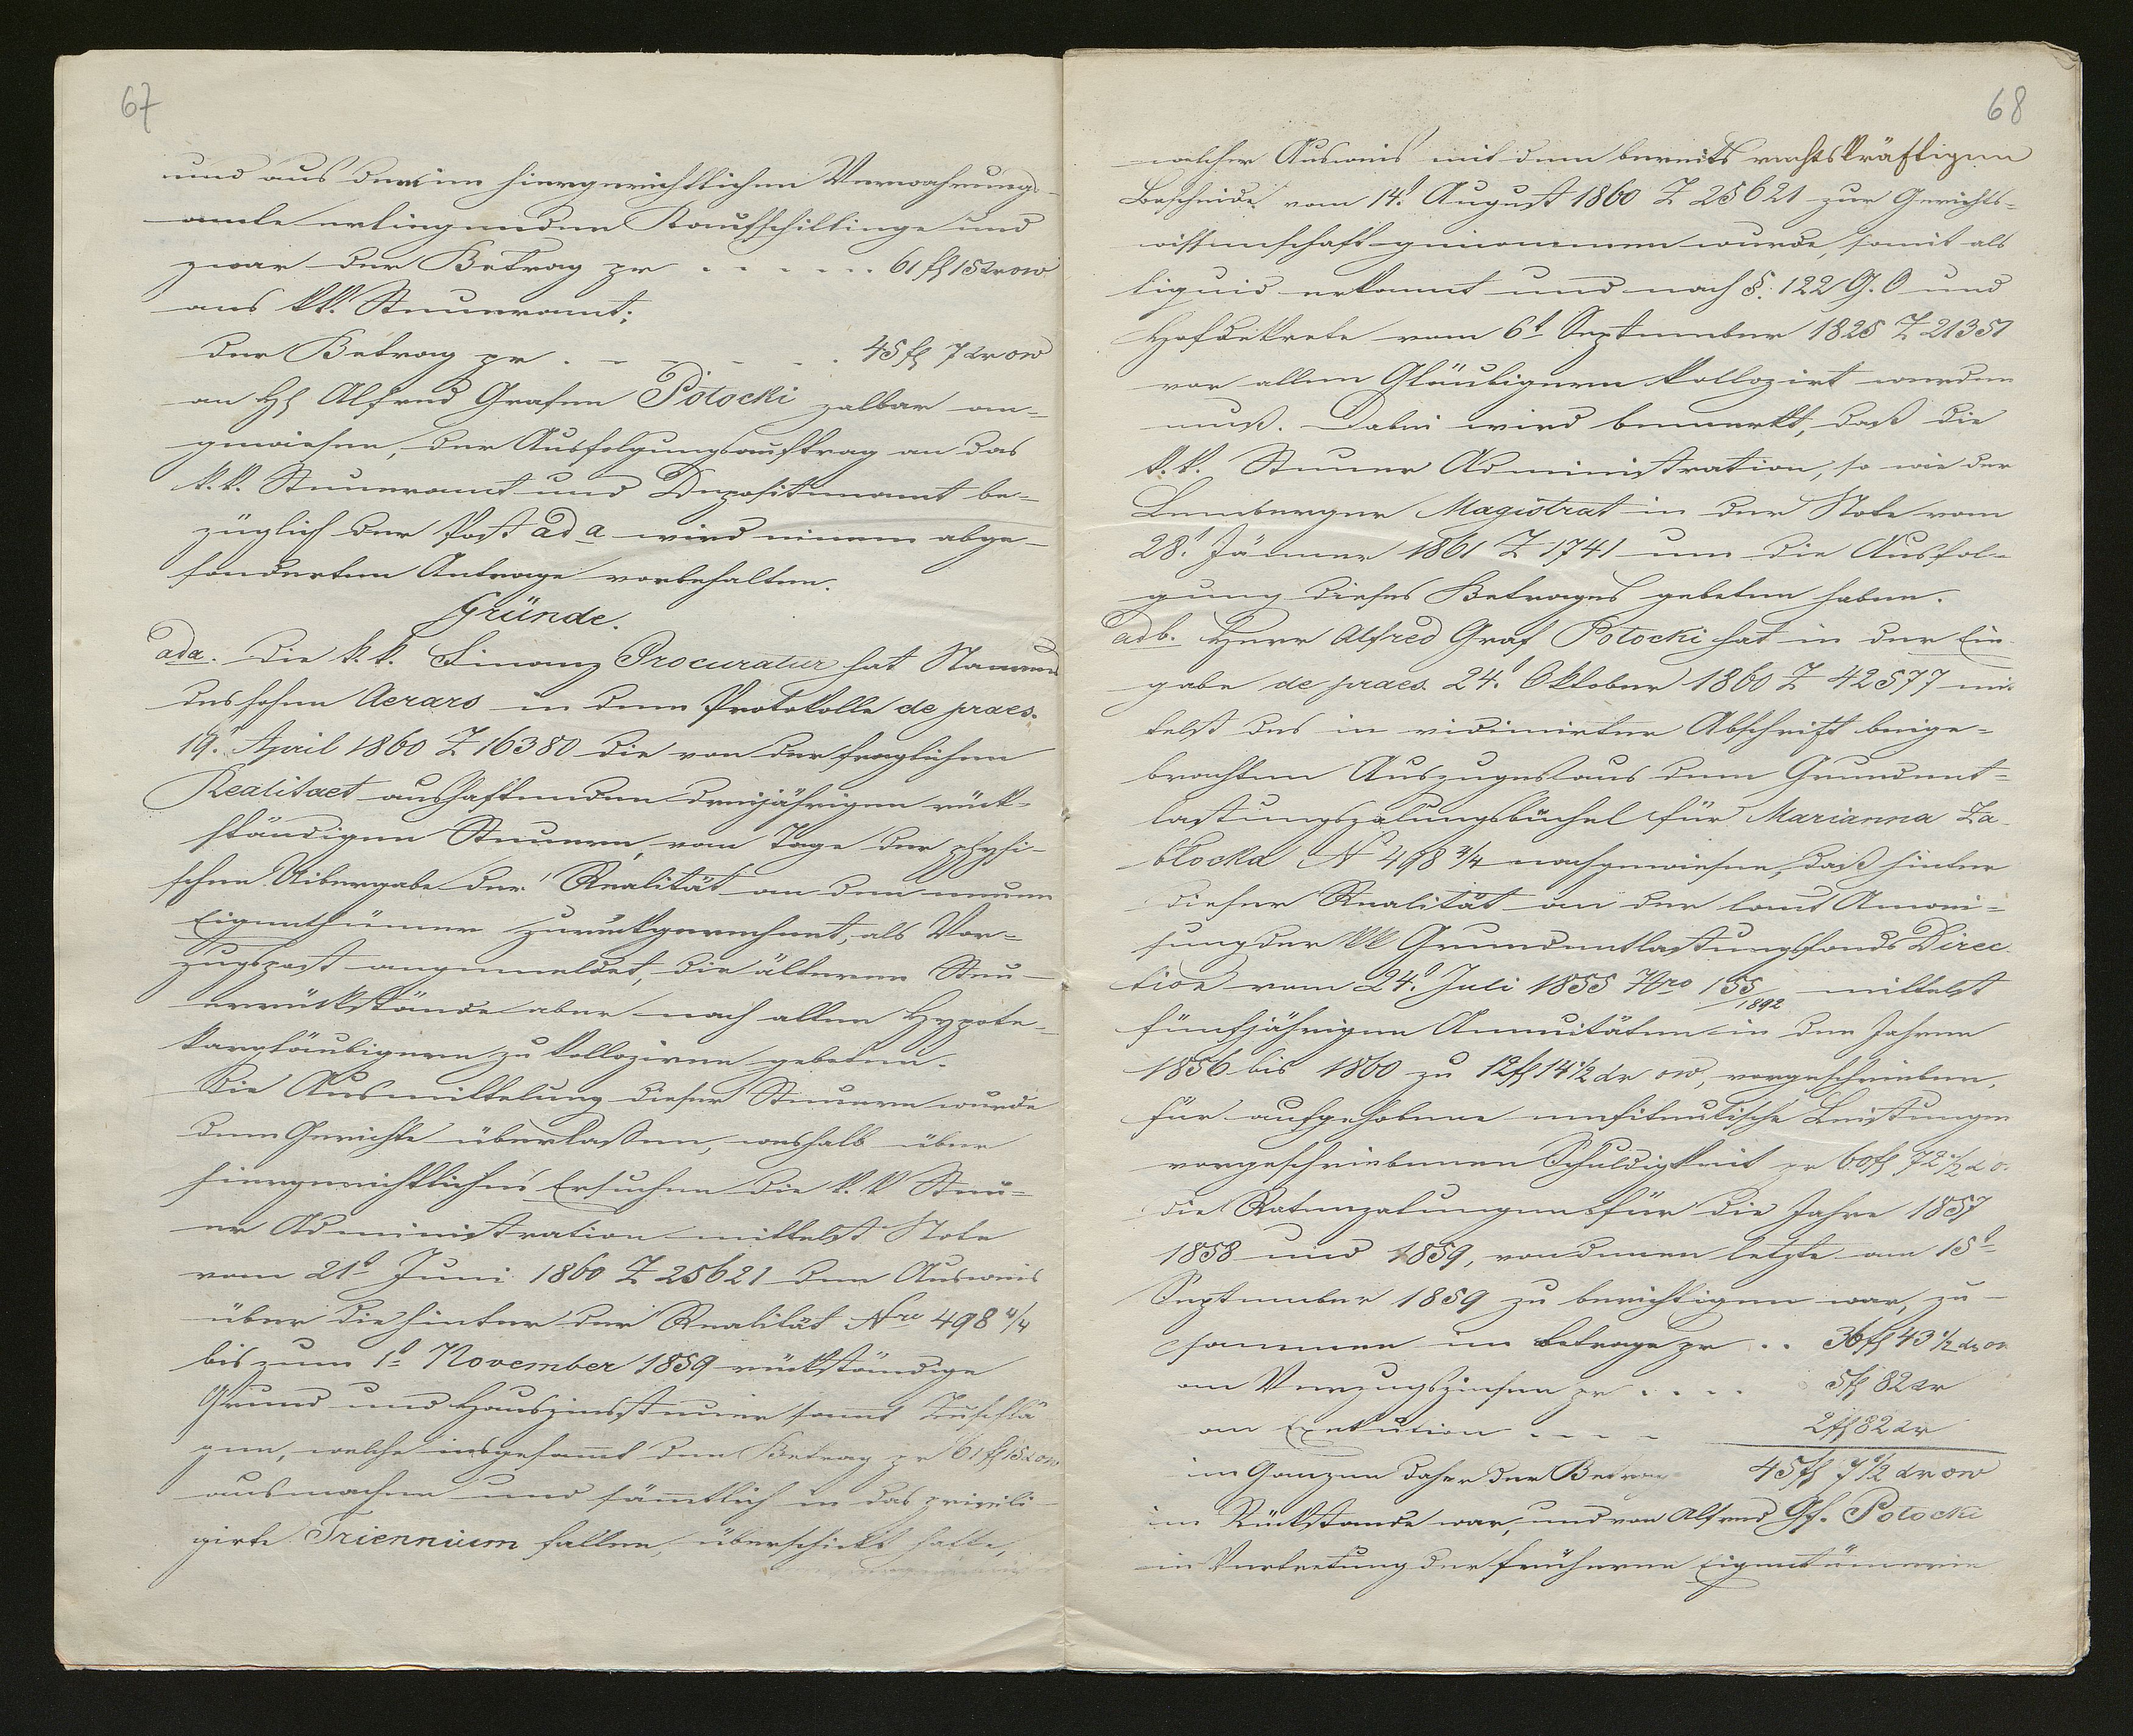 67
und aus dem im hiergerichtlichen Verwahrungs-
amte erliegenden Kaufschillinge und
zwar der Betrag pr . . . . . . 61 fl 15 kr ow
ans kk. Steueramt;
der Betrag pr . . . . . . 45 fl 7 kr ow
an H Alfred Grafen Potocki zalbar an-
gewiesen, der Ausfolgungsauftrag an das
k. k. Steueramt und Depositenamt be-
züglich der Post ad a wird einem abge-
sonderten Antrage vorbehalten.
Gründe.
ad a. Die k. k. Finanz Procuratur hat Namens
des hohen Aerars in dem Protokolle de praes.
19. April 1860 Z 16380 die von der fraglichen
Realitaet aushaftenden dreijährigen rück-
ständigen Steuern, vom Tage der physi-
schen Uibergabe der Realität an den neuen
Eigenthümer zurückgerechnet, als Vor-
zugspost angemeldet, die älteren Steu-
errückstände aber nach allen Hypote-
kargläubigern zu kolloziren gebeten.
Die Ausmittelung dieser Steuern wurde
dem Gerichte überlaßen, weshalb über
hiergerichtliches Ersuchen die k. k Steu-
er Administration mittelst Note
vom 21t Juni 1860 Z 25621 den Ausweis
über die hinter der Realität Nro 498 4/4
bis zum 1t November 1859 rückständige
Grund und Hauszinssteuer samt Zuschlä
gen, welche insgesamt den Betrag pr 61 fl 15 ow
ausmachen und sämtlich in das privili-
girte Triennium fallen, überschickt hatte,
68
welcher Ausweis mit dem bereits rechtskräftigen
Bescheide vom 14t August 1860 Z 25621 zur Gerichts-
wissenschaft genommen wurde, somit als
liquid erkannt und nach §. 122 G. O und
Hofdekrete vom 6t September 1825 Z 21351
vor allen Gläubigern kollozirt werden
muß. Dabei wird bemerkt, daß die
k. k. Steuer Administration, so wie der
Lemberger Magistrat in der Note vom
28t Jänner 1861 Z 1741 um die Ausfol-
gung dieses Betrages gebeten haben.
ad b. Herr Alfred Graf Potocki hat in der Ein
gabe de praes. 24t Oktober 1860 Z 42577 mit
telst des in vidimirter Abschrift beige-
brachten Auszuges aus dem Grundent-
lastungszalungsbüchel für Marianna Za-
błocka N 498 4/4 nachgewiesen, daß hinter
dieser Realität an der laut Anwei-
sung der kk Grundentlastungsfonds Direc
tion vom 24t Juli 1855 Nro 155/1892 mittelst
fünfjährigen Annuitäten in den Jahren
1856 bis 1860 zu 12 fl 14 1/2 kr ow, vorgeschrieben,
für aufgehobene emfiteutische Leistungen
vorgeschriebenen Schuldigkeit pr 60 fl 72 1/2 k o.
die Ratenzalungen für die Jahre 1857
1858 und 1859, von denen letzte am 15t
September 1859 zu berichtigen war, zu-
sammen im Betrage pr . . 36 fl 43 1/2 kr ow
an Verzugszinsen pr . . . . 5 fl 82 kr
an Exekution . . . . 2 fl 82 kr
im Ganzen daher der Betrag 45 fl 7 1/2 kr ow
im Rückstande war, und von Alfred Gf. Potocki
in Vertretung der früheren Eigentümerin